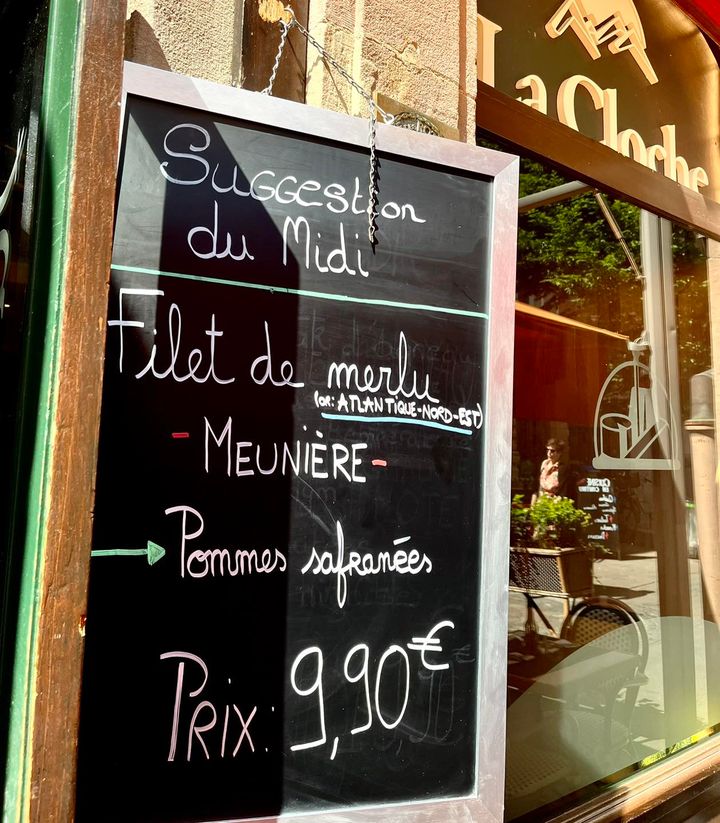 La Cloche
Suggestion
du Midi
Filet de merlu
(or: ATLANTIQUE-NORD-EST)
- MEUNIÈRE -
→ Pommes safranées
PRIX: 9,90€
CUISINE